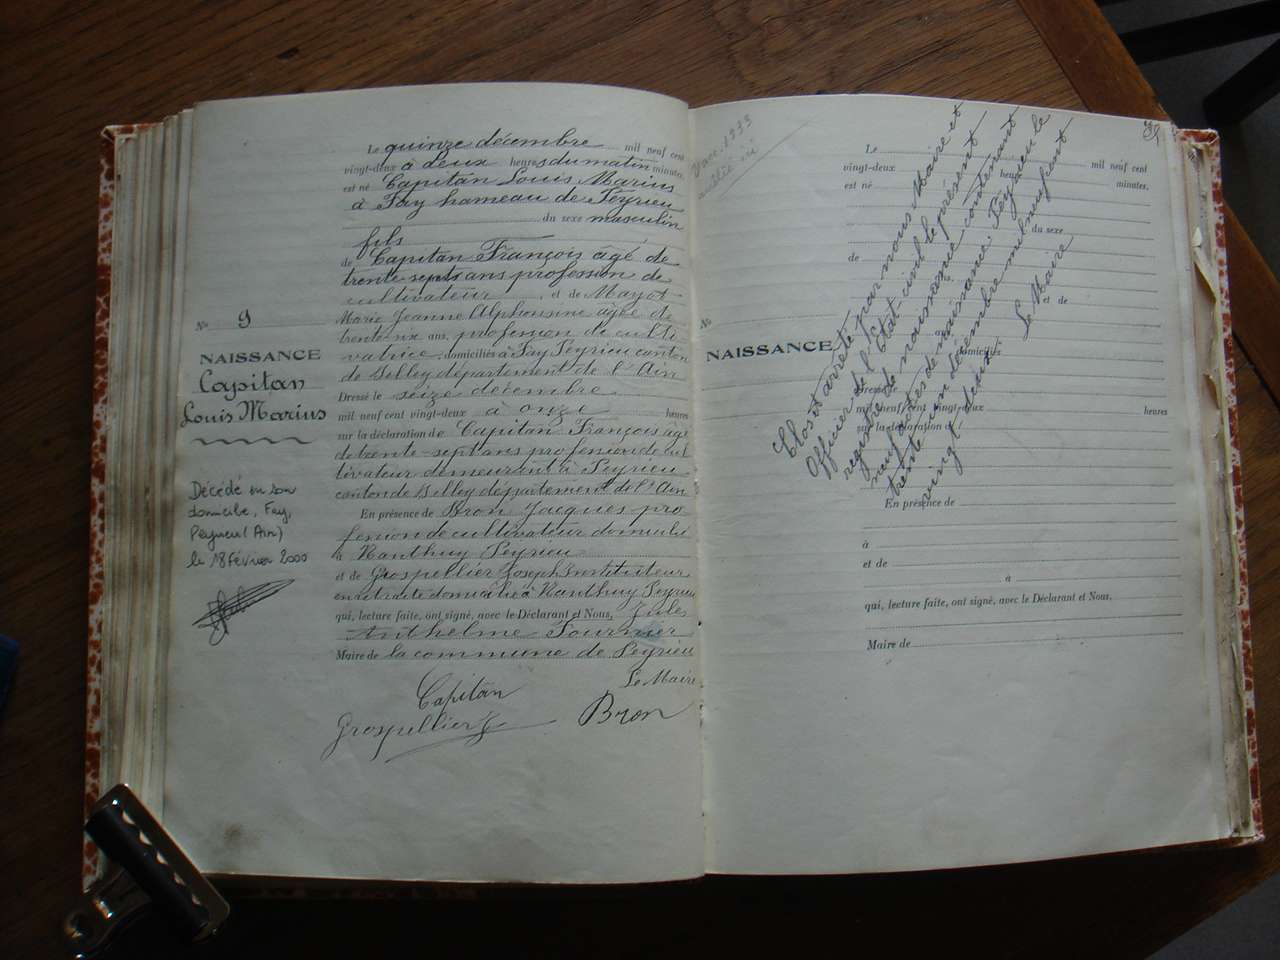 Le quinze décembre mil neuf cent
vingt-deux à deux heures du matin minutes,
est né Capitan Louis Marius
à Fay hameau de Peyrieu
du sexe masculin
fils
de Capitan François âgé de
trente-sept ans profession de
cultivateur, et de Mayot
Marie Jeanne Alphonsine âgée de
trente-six ans, profession de culti-
vatrice, domiciliés à Fay Peyrieu canton
de Belley département de l'Ain
Dressé le seize décembre
mil neuf cent vingt-deux à onze heures
sur la déclaration de Capitan François âgé
de trente-sept ans profession de cul-
tivateur demeurant à Peyrieu
canton de Belley département de l'Ain
En présence de Bron Jacques pro
fession de cultivateur domicilié
à Nanthuy Peyrieu
et de Grospellier Joseph Instituteur
en retraite domicilié à Nanthuy Peyrieu
qui, lecture faite, ont signé, avec le Déclarant et Nous, Jules
Anthelme Fournier
Maire de la commune de Peyrieu
Le Maire
Capitan
Grospellier J
Bron
No 9
NAISSANCE
Capitan
Louis Marius
Décédé en son
domicile, Fay,
Peyrieu (Ain)
le 18 février 2000
1933
ici
Le mil neuf cent
vingt-deux heures minutes,
est né
du sexe
de
et de
domiciliés
Dressé le
mil neuf cent vingt-deux heures
sur la déclaration de
En présence de
à
et de
à
qui, lecture faite, ont signé, avec le Déclarant et Nous,
Maire de
No
NAISSANCE
Clos et arrêté par nous Maire et
Officier de l'Etat civil le présent
registre de naissance contenant
neuf actes de naissance. Peyrieu le
trente un décembre mil neuf cent
vingt deux.
Le Maire